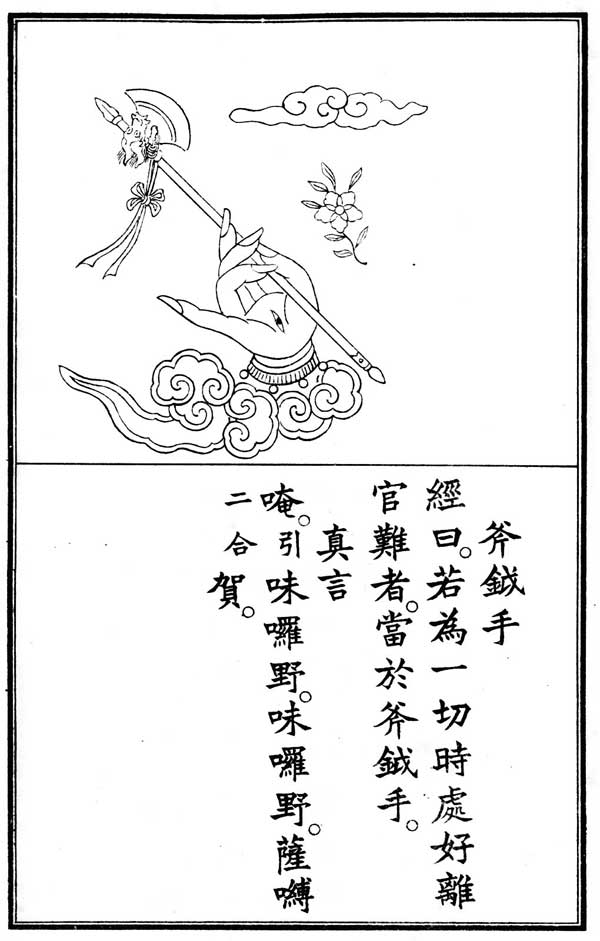 斧鉞手
經曰。若為一切時處好離
官難者。當於斧鉞手。
真言
唵。引味囉野。味囉野。薩嚩
二合賀。